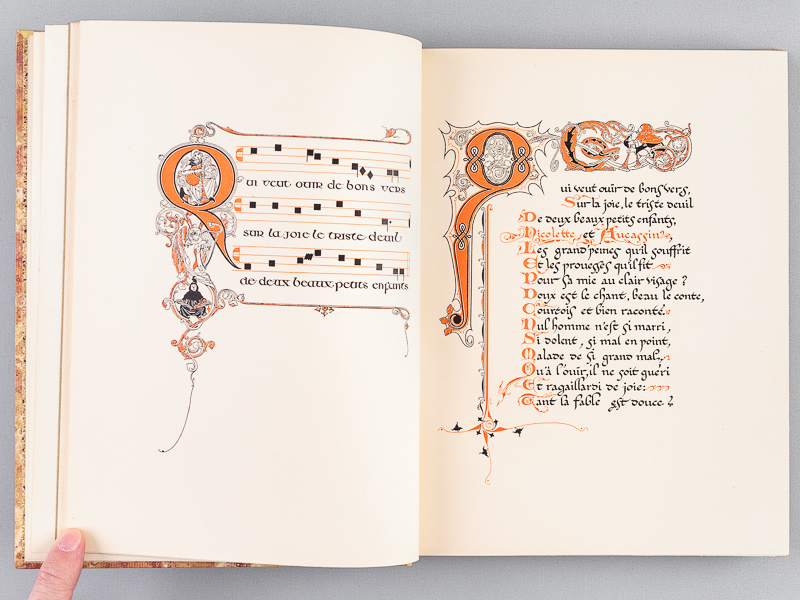 Qui veut ouir de bons vers
sur la joie le triste deuil
de deux beaux petits enfants
Qui veut ouïr de bons vers,
Sur la joie, le triste deuil
De deux beaux petits enfants,
Nicolette et Aucassin,
Les grand'peines qu'il souffrit
Et les proueses qu'il fit
Pour sa mie au clair visage ?
Doux est le chant, beau le conte,
Courtois et bien raconté.
Nul homme n'est si marri,
Si dolent, si mal en point,
Malade de si grand mal,
Qu'à l'ouïr, il ne soit guéri
Et ragaillardi de joie:
Tant la fable est douce ?